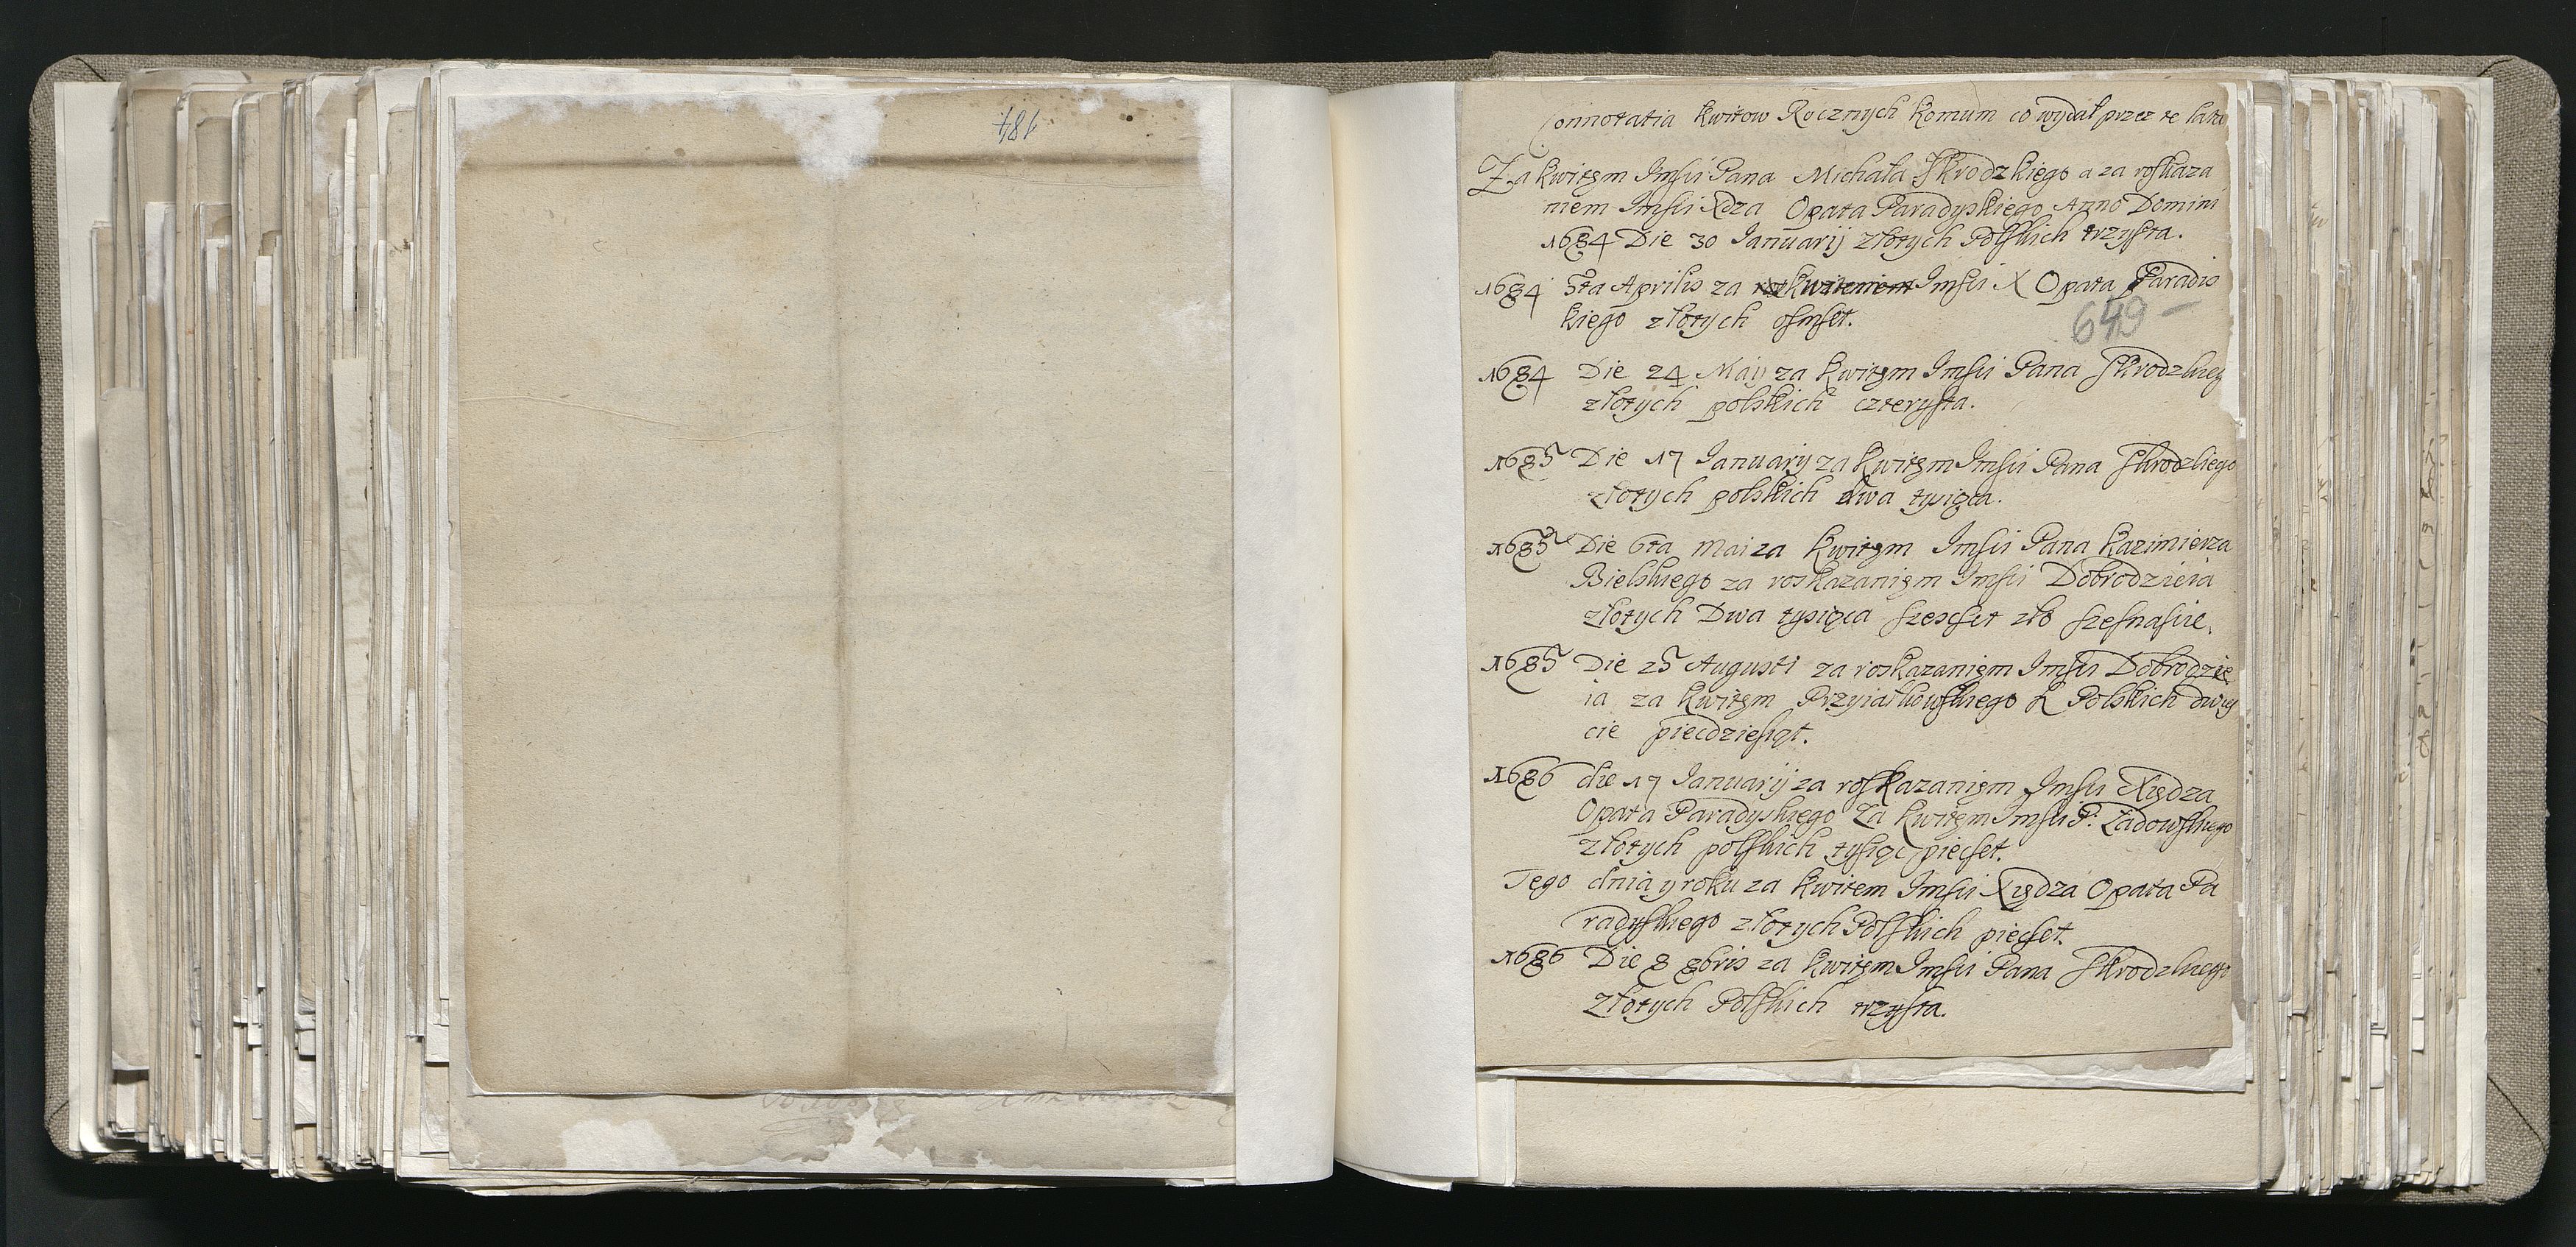 184
Connotatia kwitow Rocznych komum co wydał przez te lata
Za kwitęm Imsci Pana Michała Skrodzkiego a za roskaza
niem Imsci Xdza Opata Paradyskiego Anno Domini
1684 Die 30 Ianuarij złotych Polskich trzysta.
1684 5ta Aprilis za Imsci X Opata Paradis
kiego złotych osmset.
649 -
1684 Die 24 Maij za kwitęm Imsci Pana Skrodzkieg
złotych polskich czterysta.
1685 Die 17 Ianuarij za kwitęm Imsci Pana Skrodzkiego
złotych polskich dwa tysięca.
1685 Die 6ta Mai za kwitęm Imsci Pana Kazimierza
Bielskiego za roskazanięm Imsci Dobrodzieia
złotych Dwa tysięca szescset zło szesnascie.
1685 Die 25 Augusti za roskazanięm Imsci Dobrodzie
ia za kwitęm Przyiałkowskiego Polskich dwys
cie piecdziesiąt.
1686 die 17 Ianuarij za roskazanięm Imsci Xiędza
Opata Paradyskiego Za kwitęm Imsci P. Zadowskiego
złotych polskich tysiąc piecset.
Tego dnia y roku za kwitem Imsci Xiędza Opata Pa
radyskiego złotych Polskich piecset.
1686 Die 8 8bris za kwitęm Imsci Pana Skrodzkiego
Złotych Polskich trzysta.